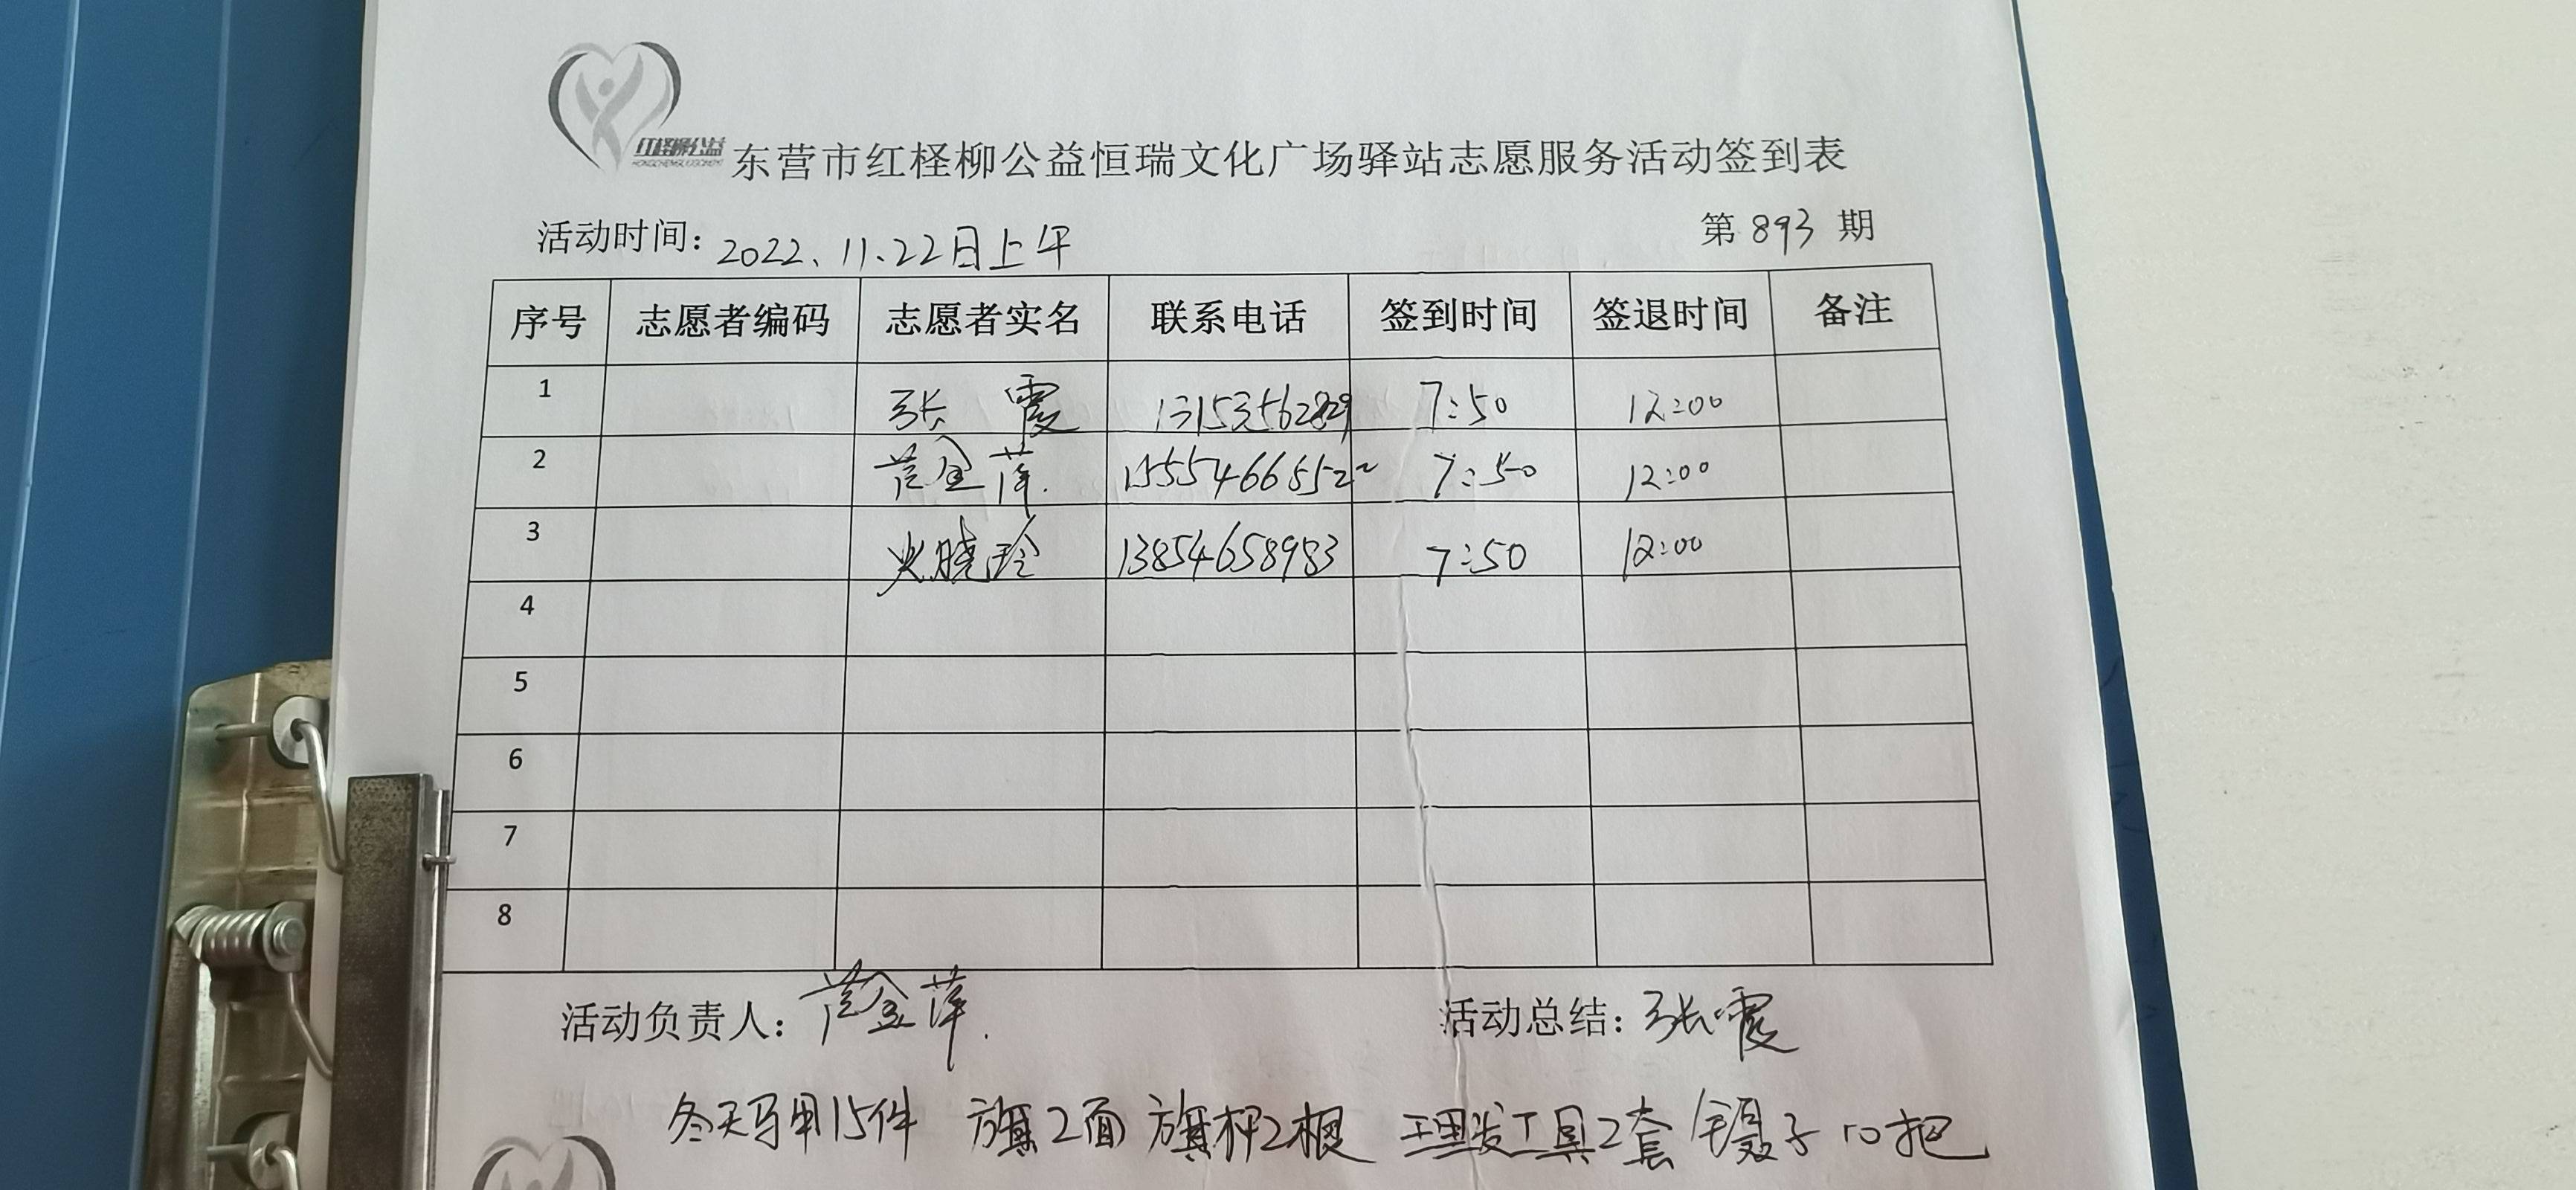 红柽柳公益
东营市红柽柳公益恒瑞文化广场驿站志愿服务活动签到表
活动时间：2022、11、22日上午 第893期
序号 志愿者编码 志愿者实名 联系电话 签到时间 签退时间 备注
1 张霞 7:50 12:00
2 金萍 15554665522 7:50 12:00
3 晓玲 13854658983 7:50 12:00
4
5
6
7
8
活动负责人：金萍 活动总结：张霞
冬天马甲15件 旗2面 旗杆2根 理发工具2套 镊子10把